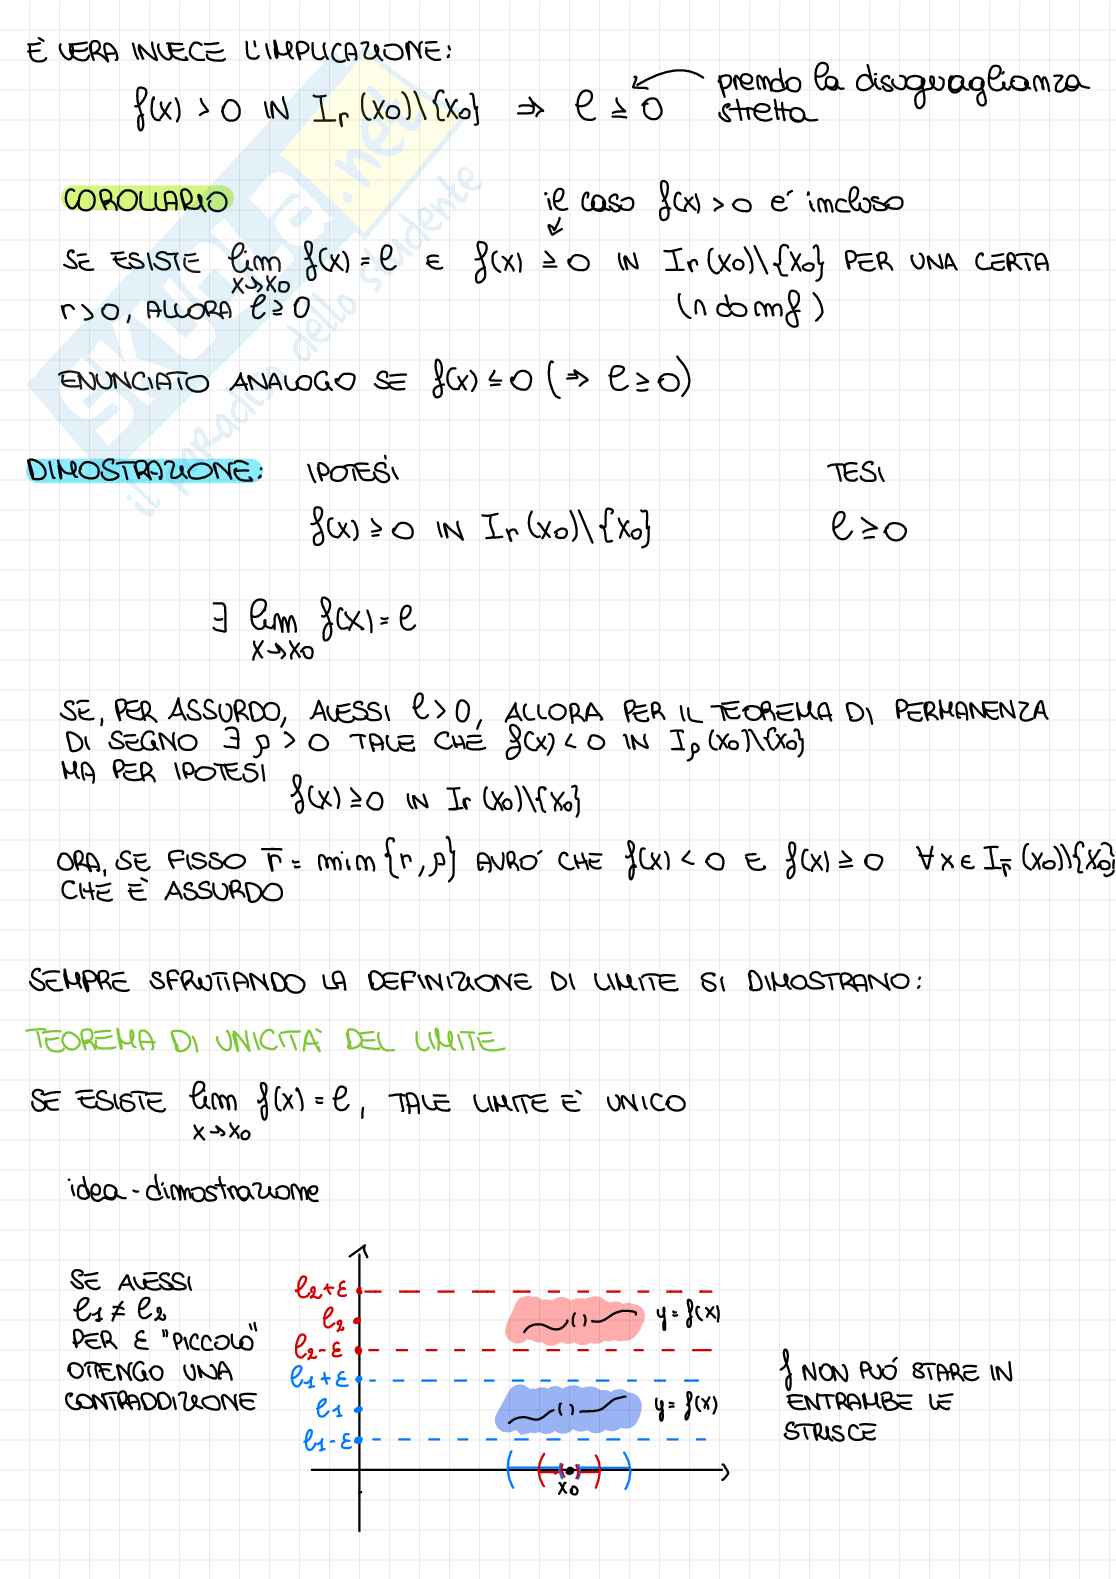 È VERA INVECE L'IMPLICAZIONE:
f(x) > 0 IN Ir (x0)\{x0} ⇒ ℓ ≥ 0
prendo la disuguaglianza
stretta
COROLLARIO
il caso f(x) > 0 é incluso
SE ESISTE lim x→x0 f(x) = ℓ E f(x) ≥ 0 IN Ir (x0)\{x0} PER UNA CERTA
r > 0, ALLORA ℓ ≥ 0
(∩ dom f)
ENUNCIATO ANALOGO SE f(x) ≤ 0 (⇒ ℓ ≥ 0)
DIMOSTRAZIONE: IPOTESI TESI
f(x) ≥ 0 IN Ir (x0)\{x0} ℓ ≥ 0
∃ lim x→x0 f(x) = ℓ
SE, PER ASSURDO, AVESSI ℓ > 0, ALLORA PER IL TEOREMA DI PERMANENZA
DI SEGNO ∃ ρ > 0 TALE CHE f(x) < 0 IN Iρ (x0)\{x0}
MA PER IPOTESI
f(x) ≥ 0 IN Ir (x0)\{x0}
ORA, SE FISSO r̅ = min {r, ρ} AVRÓ CHE f(x) < 0 E f(x) ≥ 0 ∀x ∈ Ir̅ (x0)\{x0}
CHE È ASSURDO
SEMPRE SFRUTTANDO LA DEFINIZIONE DI LIMITE SI DIMOSTRANO:
TEOREMA DI UNICITA' DEL LIMITE
SE ESISTE lim x→x0 f(x) = ℓ, TALE LIMITE È UNICO
idea-dimostrazione
SE AVESSI
ℓ1 ≠ ℓ2
PER ε "PICCOLO"
OTTENGO UNA
CONTRADDIZIONE
ℓ2+ε
ℓ2
ℓ2-ε
ℓ1+ε
ℓ1
ℓ1-ε
y = f(x)
y = f(x)
x0
f NON PUÓ STARE IN
ENTRAMBE LE
STRISCE
SKUOLA.net
il paradiso dello studente